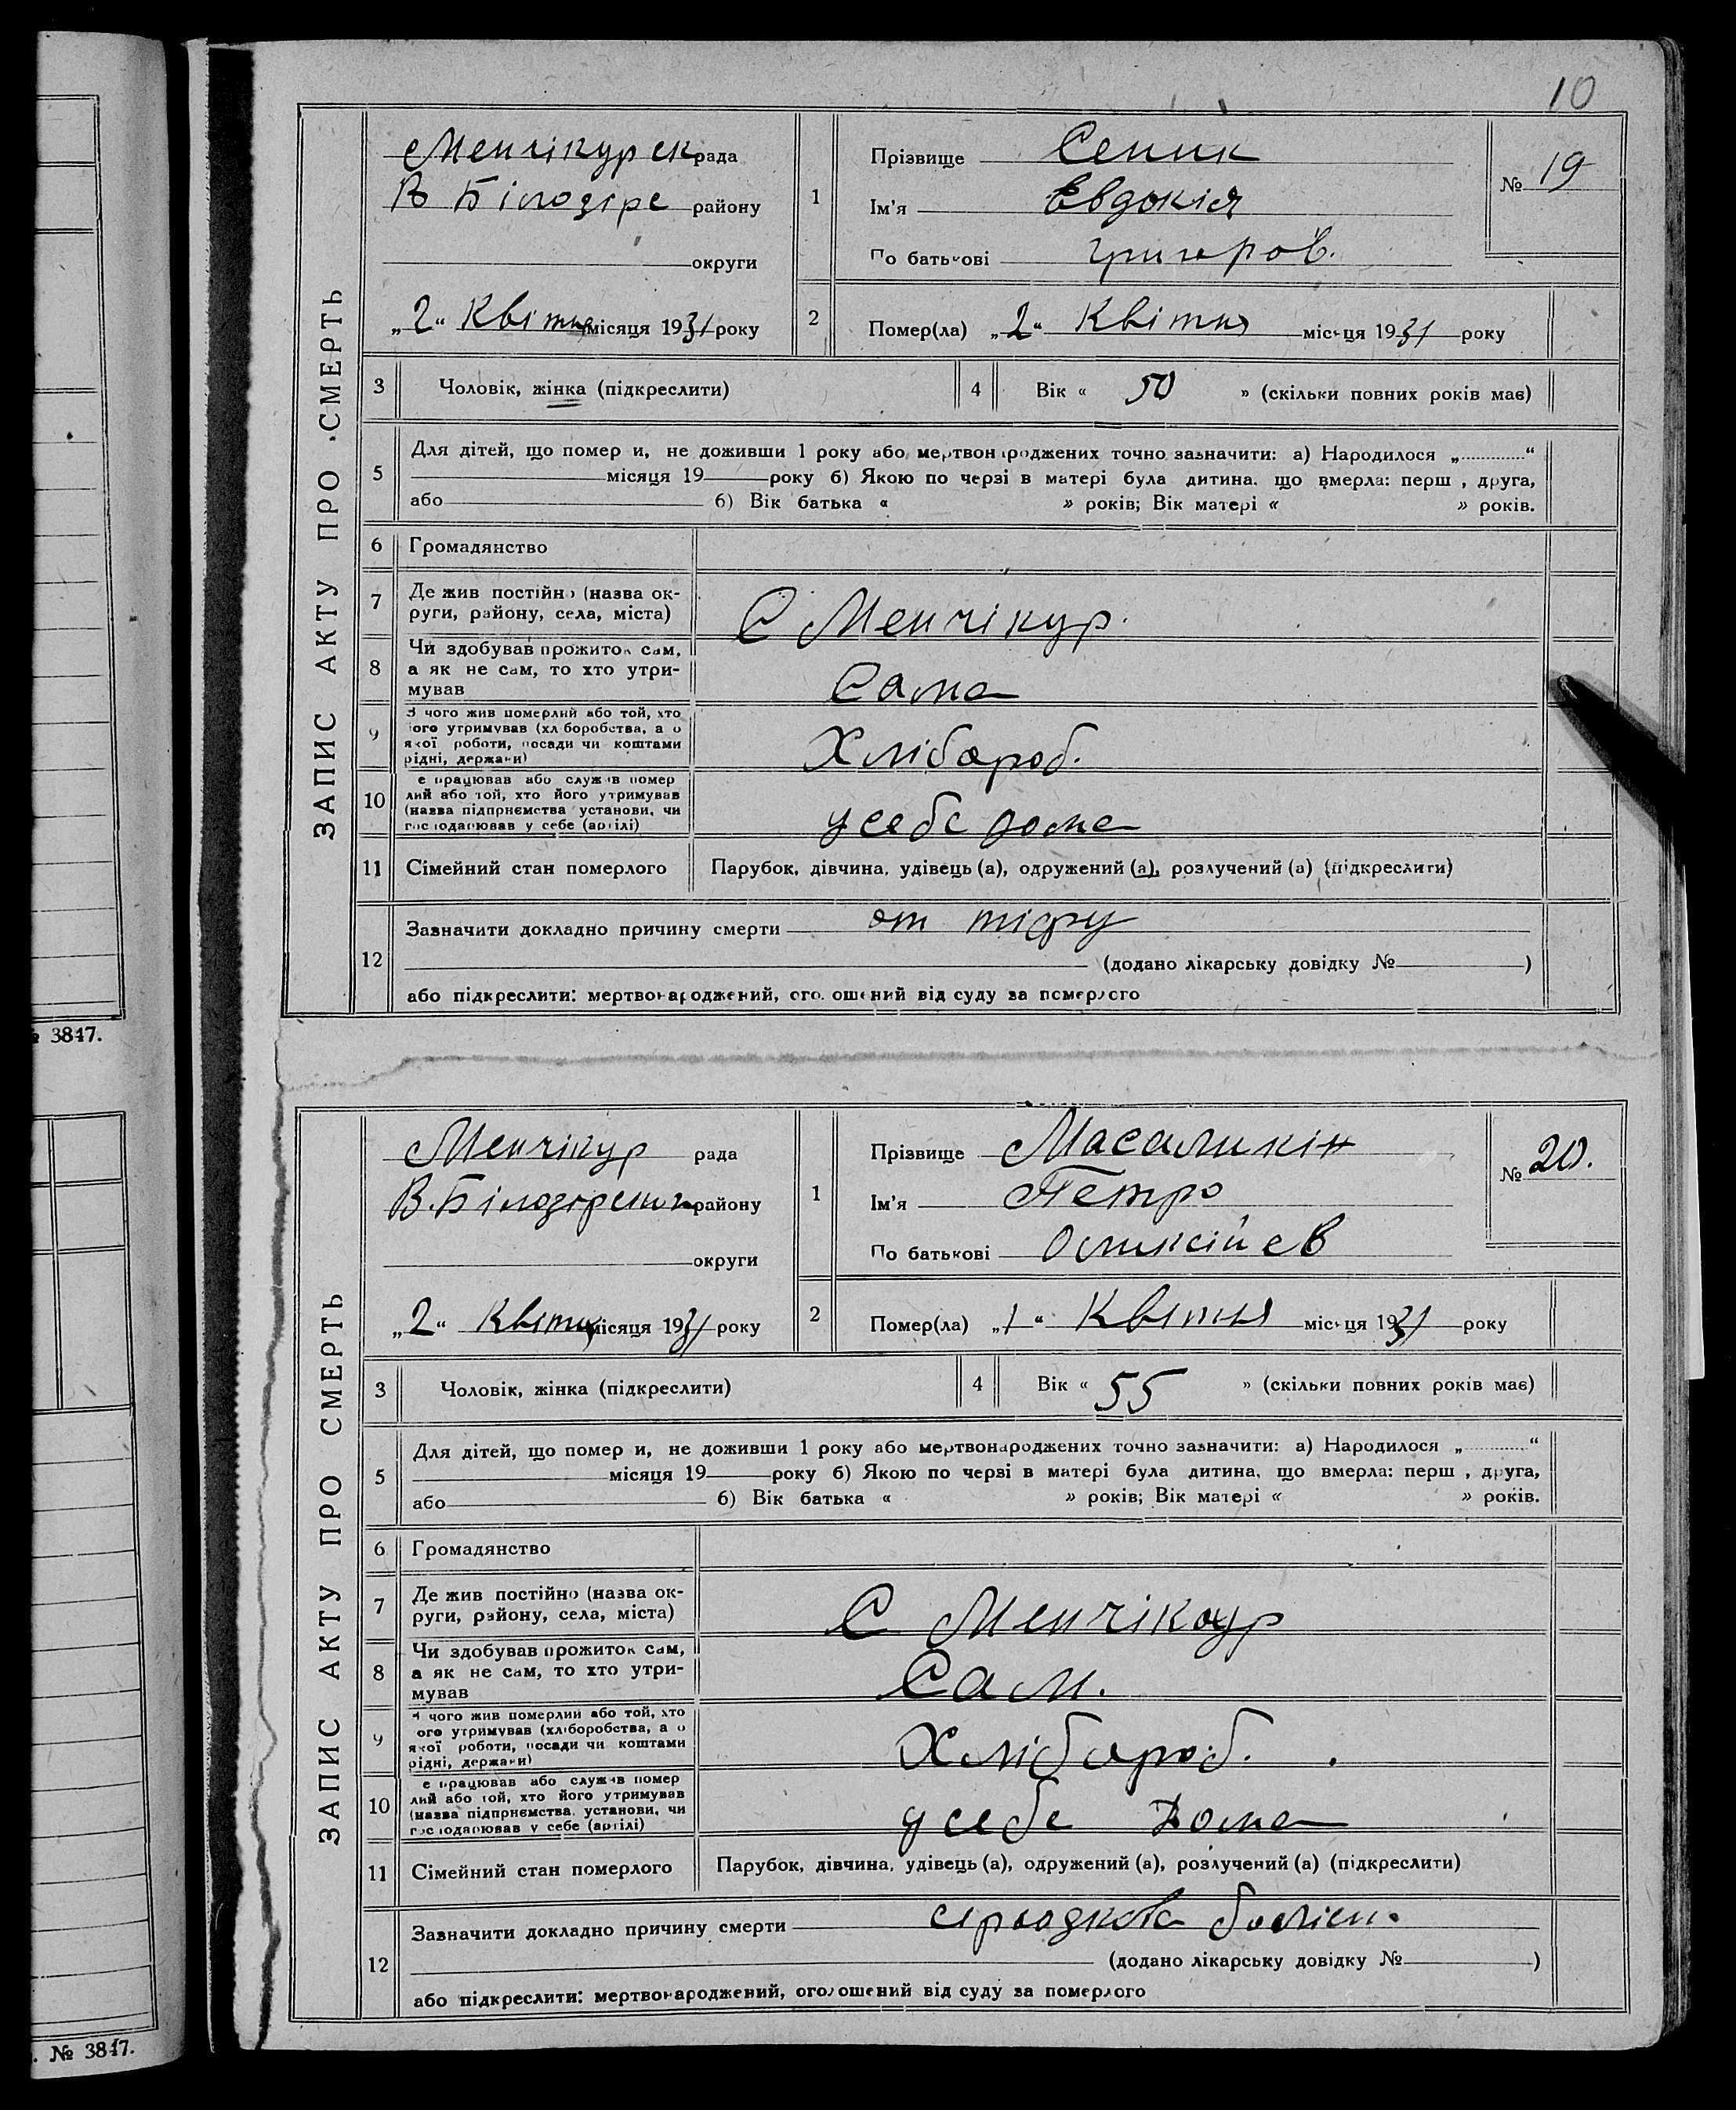 10
ЗАПИС АКТУ ПРО СМЕРТЬ
Менчікурск рада
В Білозіре району
округи
„2“ Квітня місяця 1931 року
1
Прізвище Сепик
Ім'я Евдокія
По батькові Григоров.
№ 19
2
Помер(ла) „2“ Квітня місяця 1931 року
3 Чоловік, жінка (підкреслити)
4 Вік « 50 » (скільки повних років має)
5 Для дітей, що помер и, не доживши 1 року або мертвонароджених точно зазначити: а) Народилося „ “
місяця 19 року б) Якою по черзі в матері була дитина, що вмерла: перш , друга,
або б) Вік батька « » років; Вік матері « » років.
6 Громадянство
7 Де жив постійно (назва ок-
руги, району, села, міста) С Менчікур.
8 Чи здобував прожиток сам,
а як не сам, то хто утри-
мував Сама
9 З чого жив померлий або той, хто
ого утримував (хліборобства, а о
якої роботи, посади чи коштами
рідні, держави) Хлібороб.
10 е працював або служив помер
лий або той, хто його утримував
(назва підприємства установи, чи
господарював у себе (артілі) у себе дома
11 Сімейний стан померлого Парубок, дівчина, удівець (а), одружений (а), розлучений (а) (підкреслити)
12 Зазначити докладно причину смерти от тіфу
(додано лікарську довідку № )
або підкреслити: мертвонароджений, оголошений від суду за померлого
№ 3847.
ЗАПИС АКТУ ПРО СМЕРТЬ
Менчікур рада
В. Білозірськ району
округи
„2“ Квітня місяця 1931 року
1
Прізвище Масаликін
Ім'я Петро
По батькові Оликсійев
№ 20.
2
Помер(ла) „1“ Квітня місяця 1931 року
3 Чоловік, жінка (підкреслити)
4 Вік « 55 » (скільки повних років має)
5 Для дітей, що помер и, не доживши 1 року або мертвонароджених точно зазначити: а) Народилося „ “
місяця 19 року б) Якою по черзі в матері була дитина, що вмерла: перш , друга,
або б) Вік батька « » років; Вік матері « » років.
6 Громадянство
7 Де жив постійно (назва ок-
руги, району, села, міста) С Менчікур
8 Чи здобував прожиток сам,
а як не сам, то хто утри-
мував Сам.
9 З чого жив померлий або той, хто
ого утримував (хліборобства, а о
якої роботи, посади чи коштами
рідні, держави) Хлібороб.
10 е працював або служив помер
лий або той, хто його утримував
(назва підприємства, установи, чи
господарював у себе (артілі) у себе Дома
11 Сімейний стан померлого Парубок, дівчина, удівець (а), одружений (а), розлучений (а) (підкреслити)
12 Зазначити докладно причину смерти
(додано лікарську довідку № )
або підкреслити: мертвонароджений, оголошений від суду за померлого
. № 3847.